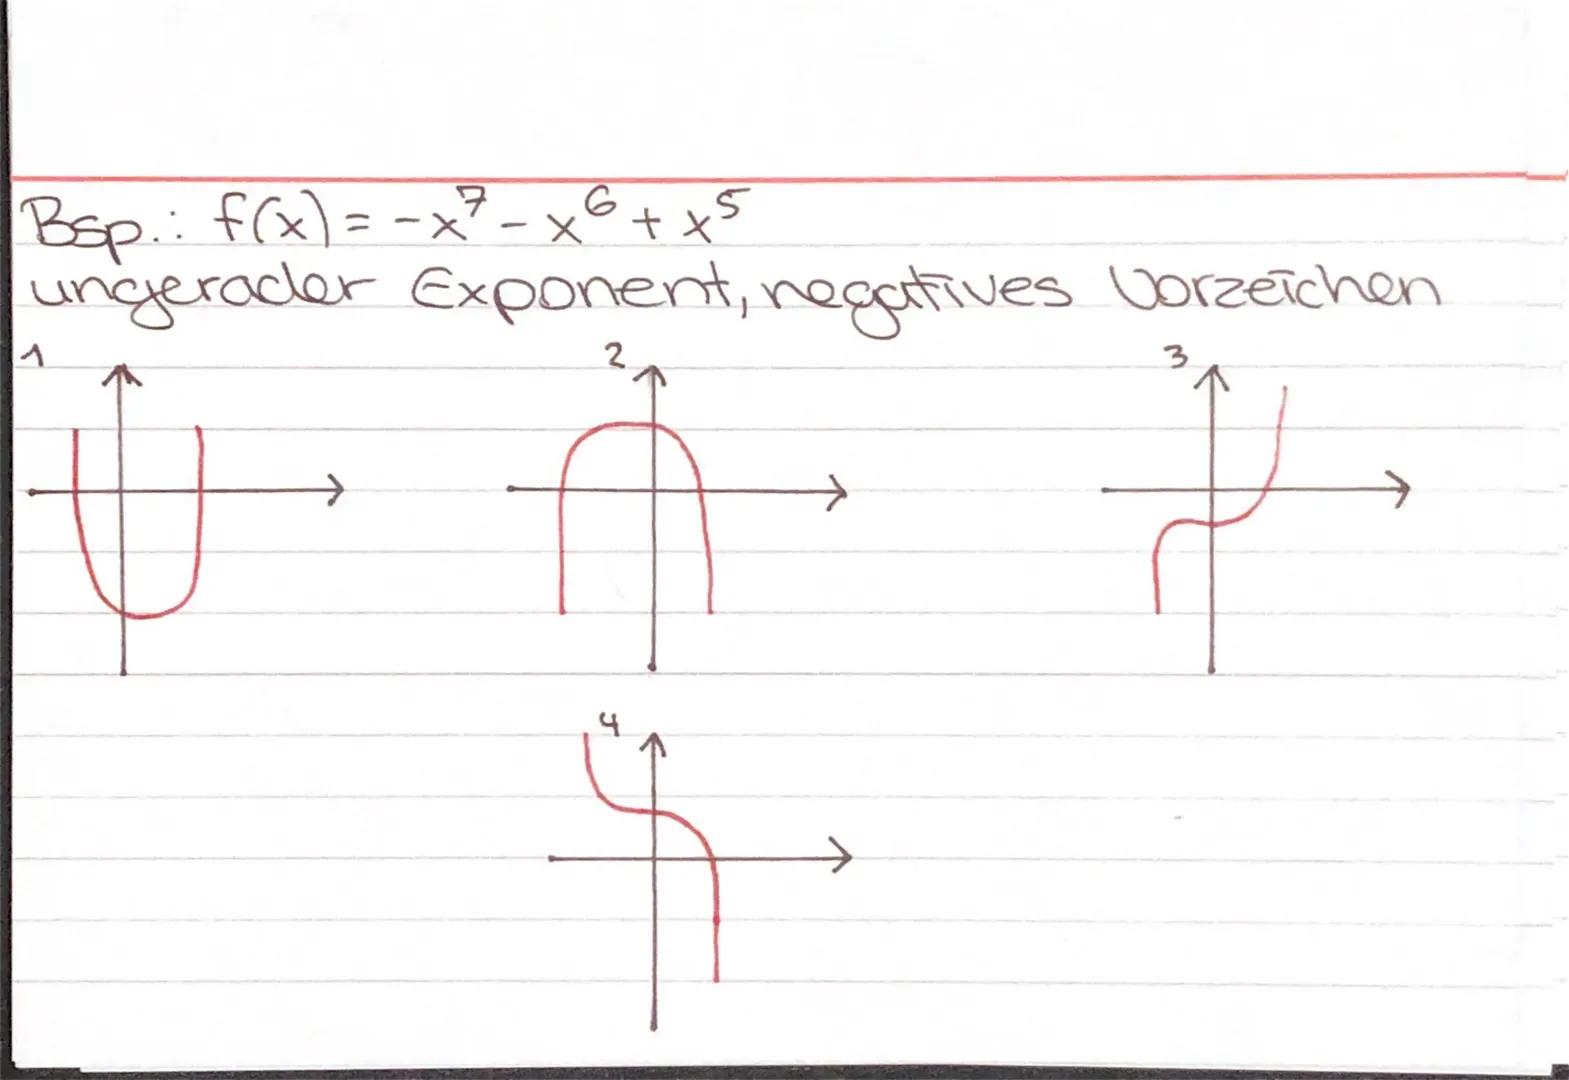 Bsp.: f(x) = -x⁷ - x⁶ + x⁵
ungerader Exponent, negatives Vorzeichen
1 2 3
4